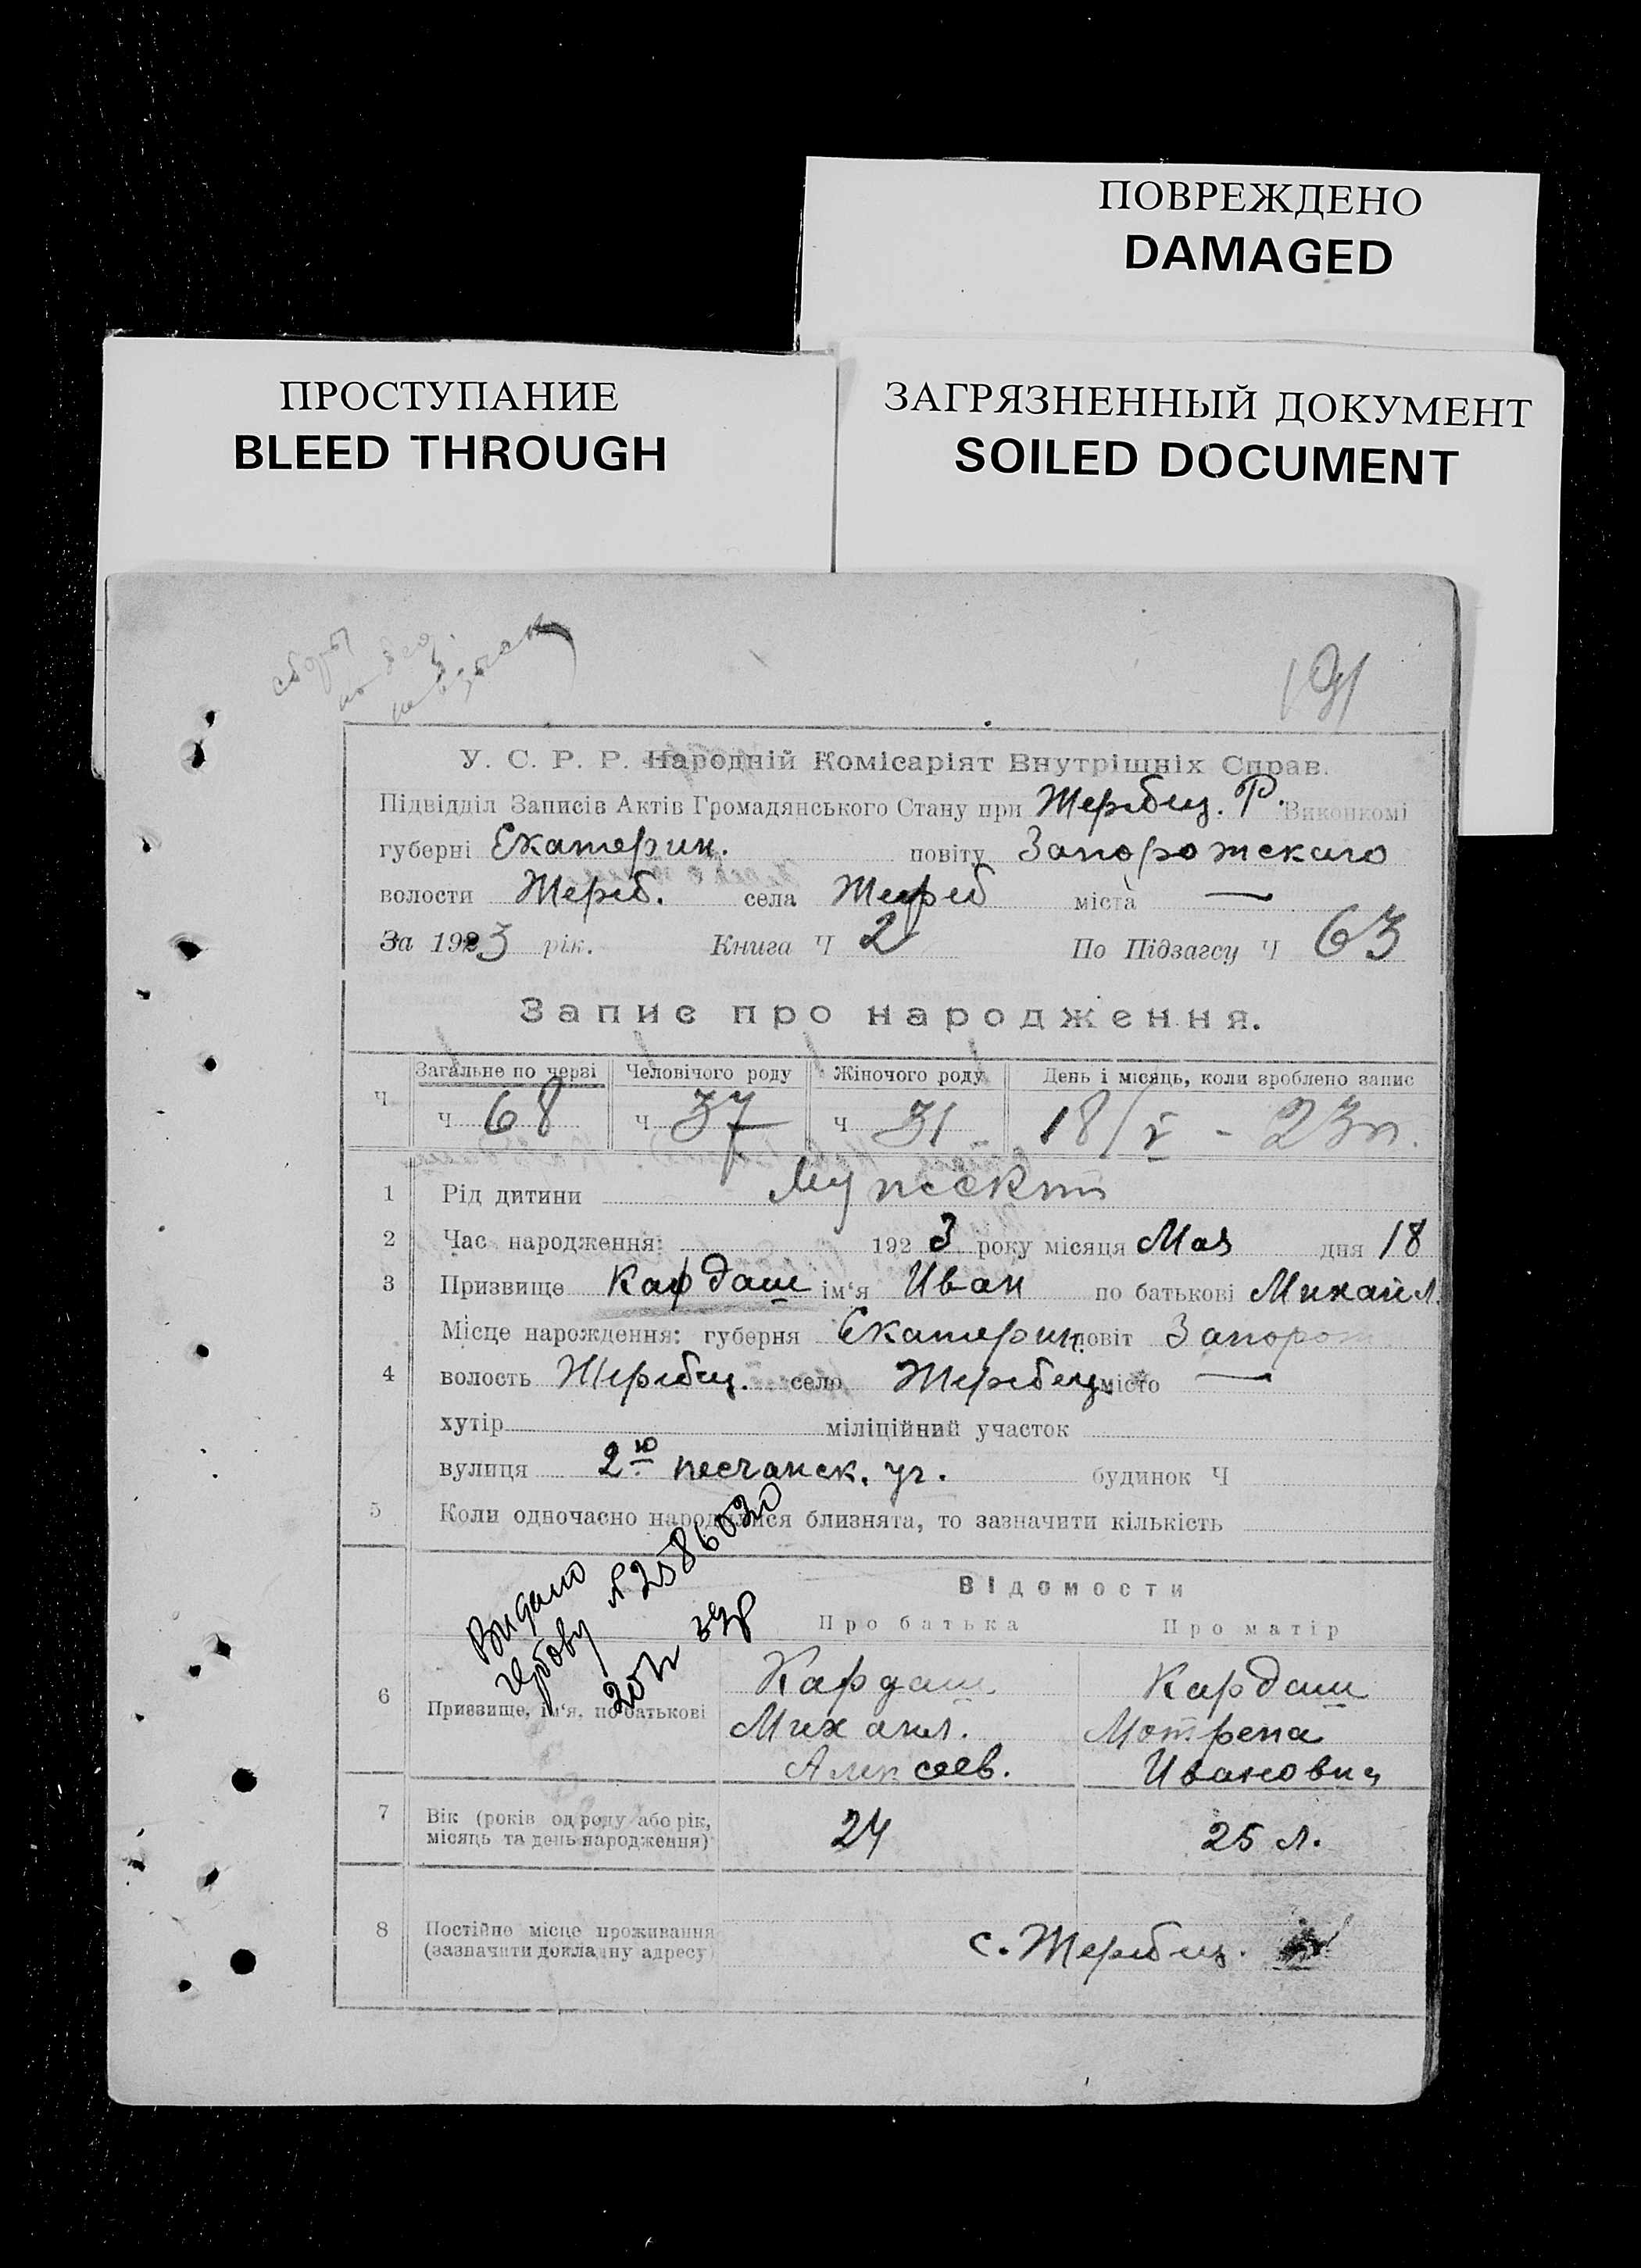 ПОВРЕЖДЕНО
DAMAGED
ПРОСТУПАНИЕ
BLEED THROUGH
ЗАГРЯЗНЕННЫЙ ДОКУМЕНТ
SOILED DOCUMENT
191
У. С. Р. Р. Народній Комісаріят Внутрішніх Справ.
Підвідділ Записів Актів Громадянського Стану при Жеребец. Р. Виконкомі
губерні Екатерин. повіту Запорожскаго
волости Жереб. села Жереб міста —
За 1923 рік. Книга Ч 2 По Підзагсу Ч 63
Запис про народження.
Ч Загальне по черзі Человічого роду Жіночого роду День і місяць, коли зроблено запис
Ч 68 Ч 37 Ч 31 18/V - 23 г.
1 Рід дитини Мужск
2 Час народження: 1923 року місяця Мая дня 18
3 Призвище Кардаш ім'я Иван по батькові Михаил.
Місце нарождення: губерня Екатерин. повіт Запорож
4 волость Жеребец. село Жеребец. місто —
хутір міліційний участок
вулиця 2ю песчанск. ул. будинок Ч
5 Коли одночасно народилися близнята, то зазначити кількість
Видано
№ 2586030
Відомости
Про батька Про матір
6 Призвище, ім'я, по батькові
Кардаш Кардаш
Михаил. Мотрена
Алексеев. Ивановна
7 Вік (років од роду або рік, місяць та день народження) 24 25 л.
8 Постійне місце проживання
(зазначити докладну адресу) с. Жеребец.